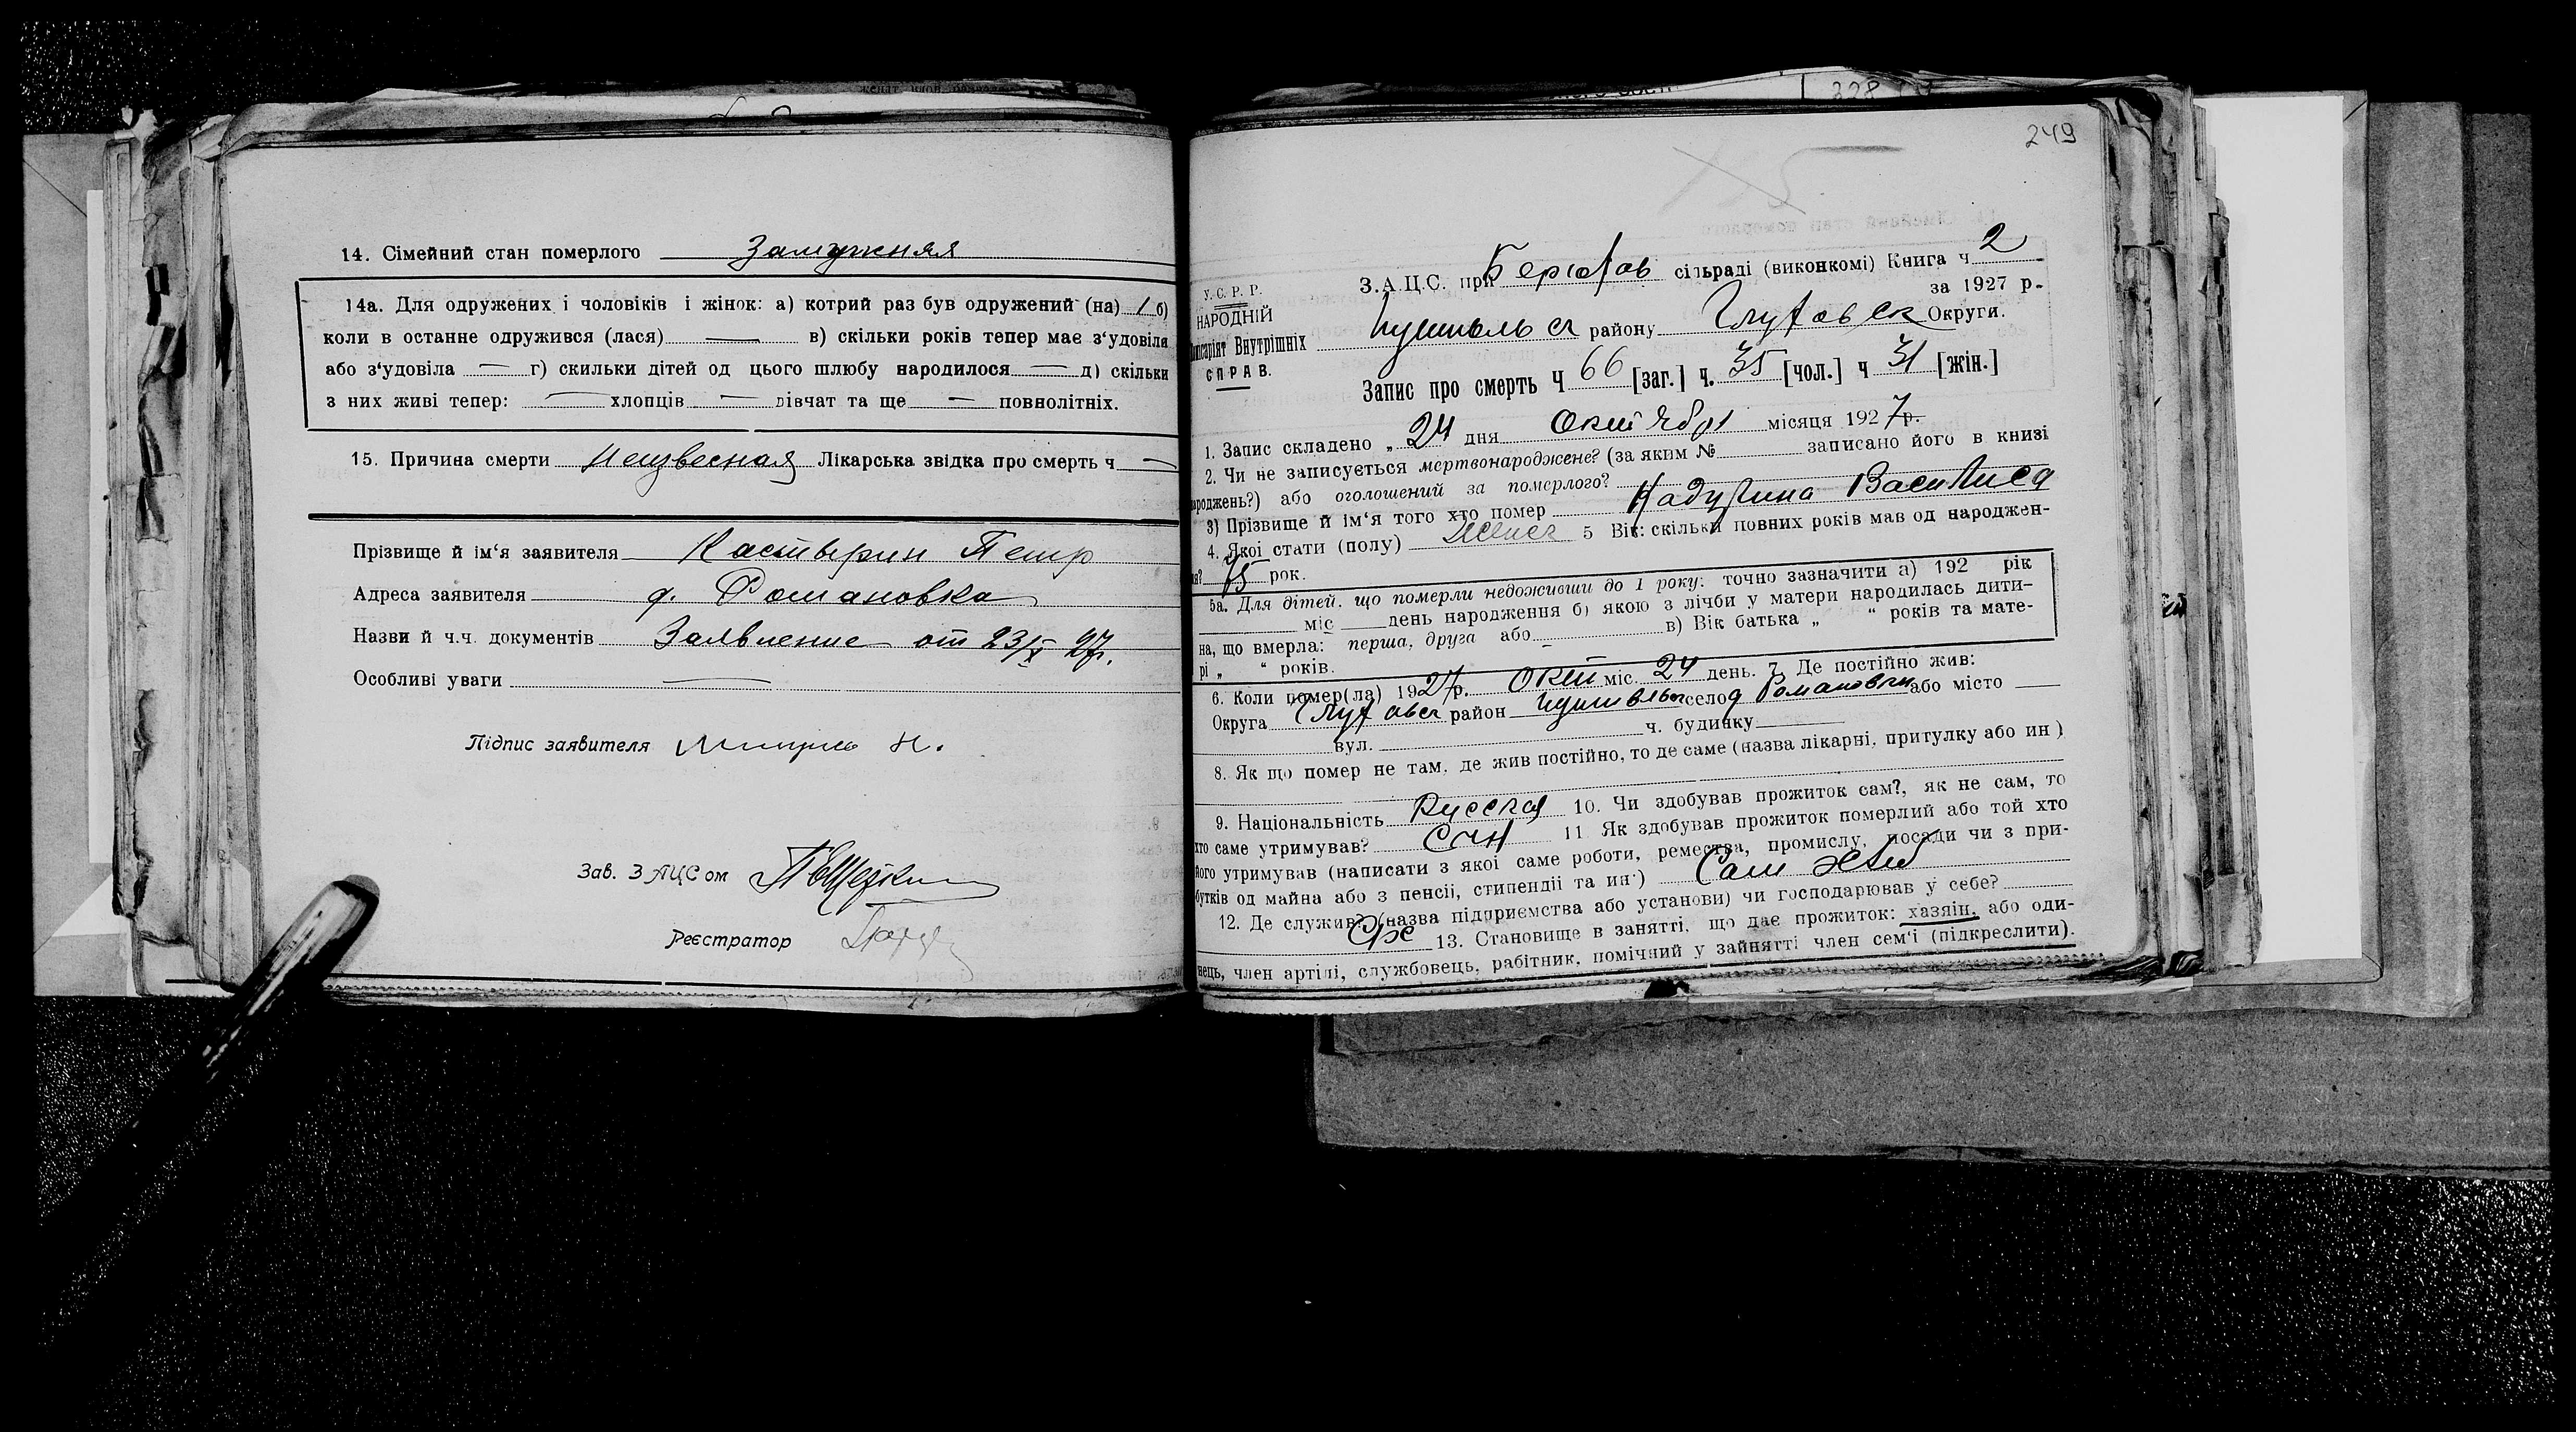 14. Сімейний стан померлого Замужняя
14а. Для одружених і чоловіків і жінок: а) котрий раз був одружений (на) 1 б)
коли в останне одружився (лася) — в) скільки років тепер має з‘удовіла
або з‘удовіла — г) скильки дітей од цього шлюбу народилося — д) скільки
з них живі тепер: — хлопців — дівчат та ще — повнолітніх.
15. Причина смерти Неизвесная Лікарська звідка про смерть ч —
Прізвище й ім‘я заявителя Кастырин Петр
Адреса заявителя д. Романовка
Назви й ч.ч. документів Заявление от 23/X 27г.
Особливі уваги —
Підпис заявителя
Зав. ЗАЦСом
Реєстратор
249
У. С. Р. Р.
НАРОДНІЙ
Комісаріят Внутрішніх
СПРАВ.
З.А.Ц.С. при сільраді (виконкомі) Книга ч 2
за 1927 р.
Путивльск району Глуховск Округи.
Запис про смерть Ч 66 [заг.] ч. 35 [чол.] ч 31 [жін.]
1. Запис складено „ 24 дня Октября місяця 1927р.
2. Чи не записується мертвонароджене? (за яким № записано його в книзі
народжень?) або оголошений за померлого?
3) Прізвище й ім‘я того хто помер Василиса
4. Якої стати (полу) Женск 5 Вік: скільки повних років мав од народжен-
ня? 75 рок.
5а. Для дітей, що померли недоживши до 1 року: точно зазначити а) 192 рік
міс день народження б) якою з лічби у матери народилась дити-
на, що вмерла: перша, друга або в) Вік батька „ “ років та мате-
рі „ “ років.
6. Коли помер(ла) 1927р. Окт міс. 24 день. 7. Де постійно жив:
Округа Глуховск район Путивльск село д Романовки або місто —
вул. ч. будинку
8. Як що помер не там, де жив постійно, то де саме (назва лікарні, притулку або ин)
9. Національність Русская 10. Чи здобував прожиток сам?, як не сам, то
хто саме утримував? Сын 11. Як здобував прожиток померлий або той хто
його утримував (написати з якої саме роботи, ремества, промислу, посади чи з при-
бутків од майна або з пенсії, стипендії та ин·)
12. Де служив? (назва підприємства або установи) чи господарював у себе?
13. Становище в занятті, що дає прожиток: хазяїн, або оди-
нець, член артілі, службовець, рабітник, помічний у зайнятті член сем‘ї (підкреслити).